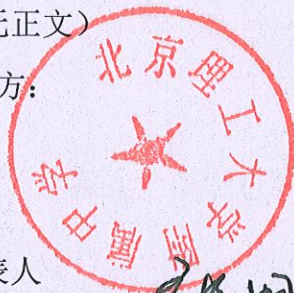 无正文）
方：
北京理工大学附属中学
表人